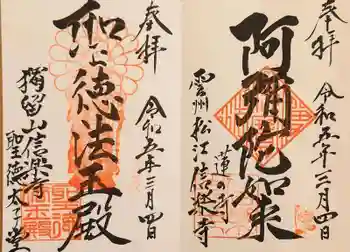 奉拝
令和五年三月四日
阿彌陀如来
蓮の寺
雲州松江信楽寺
奉拝
令和五年三月四日
聖徳法王殿
獨留山信楽寺
聖徳太子堂